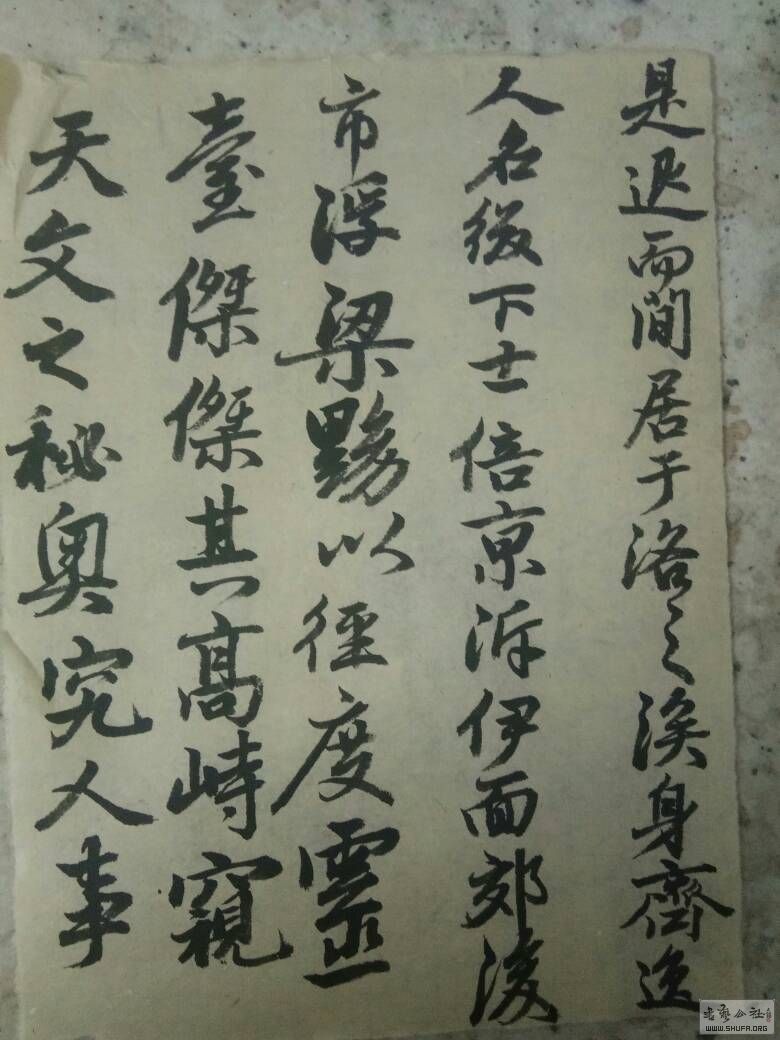 是退而間居于洛之涘身齊逸
人名綴下士倍京泝伊面郊後
市浮梁黝以徑度靈
臺傑傑其高峙窺
天文之秘奧究人事
书艺公社
WWW.SHUFA.ORG